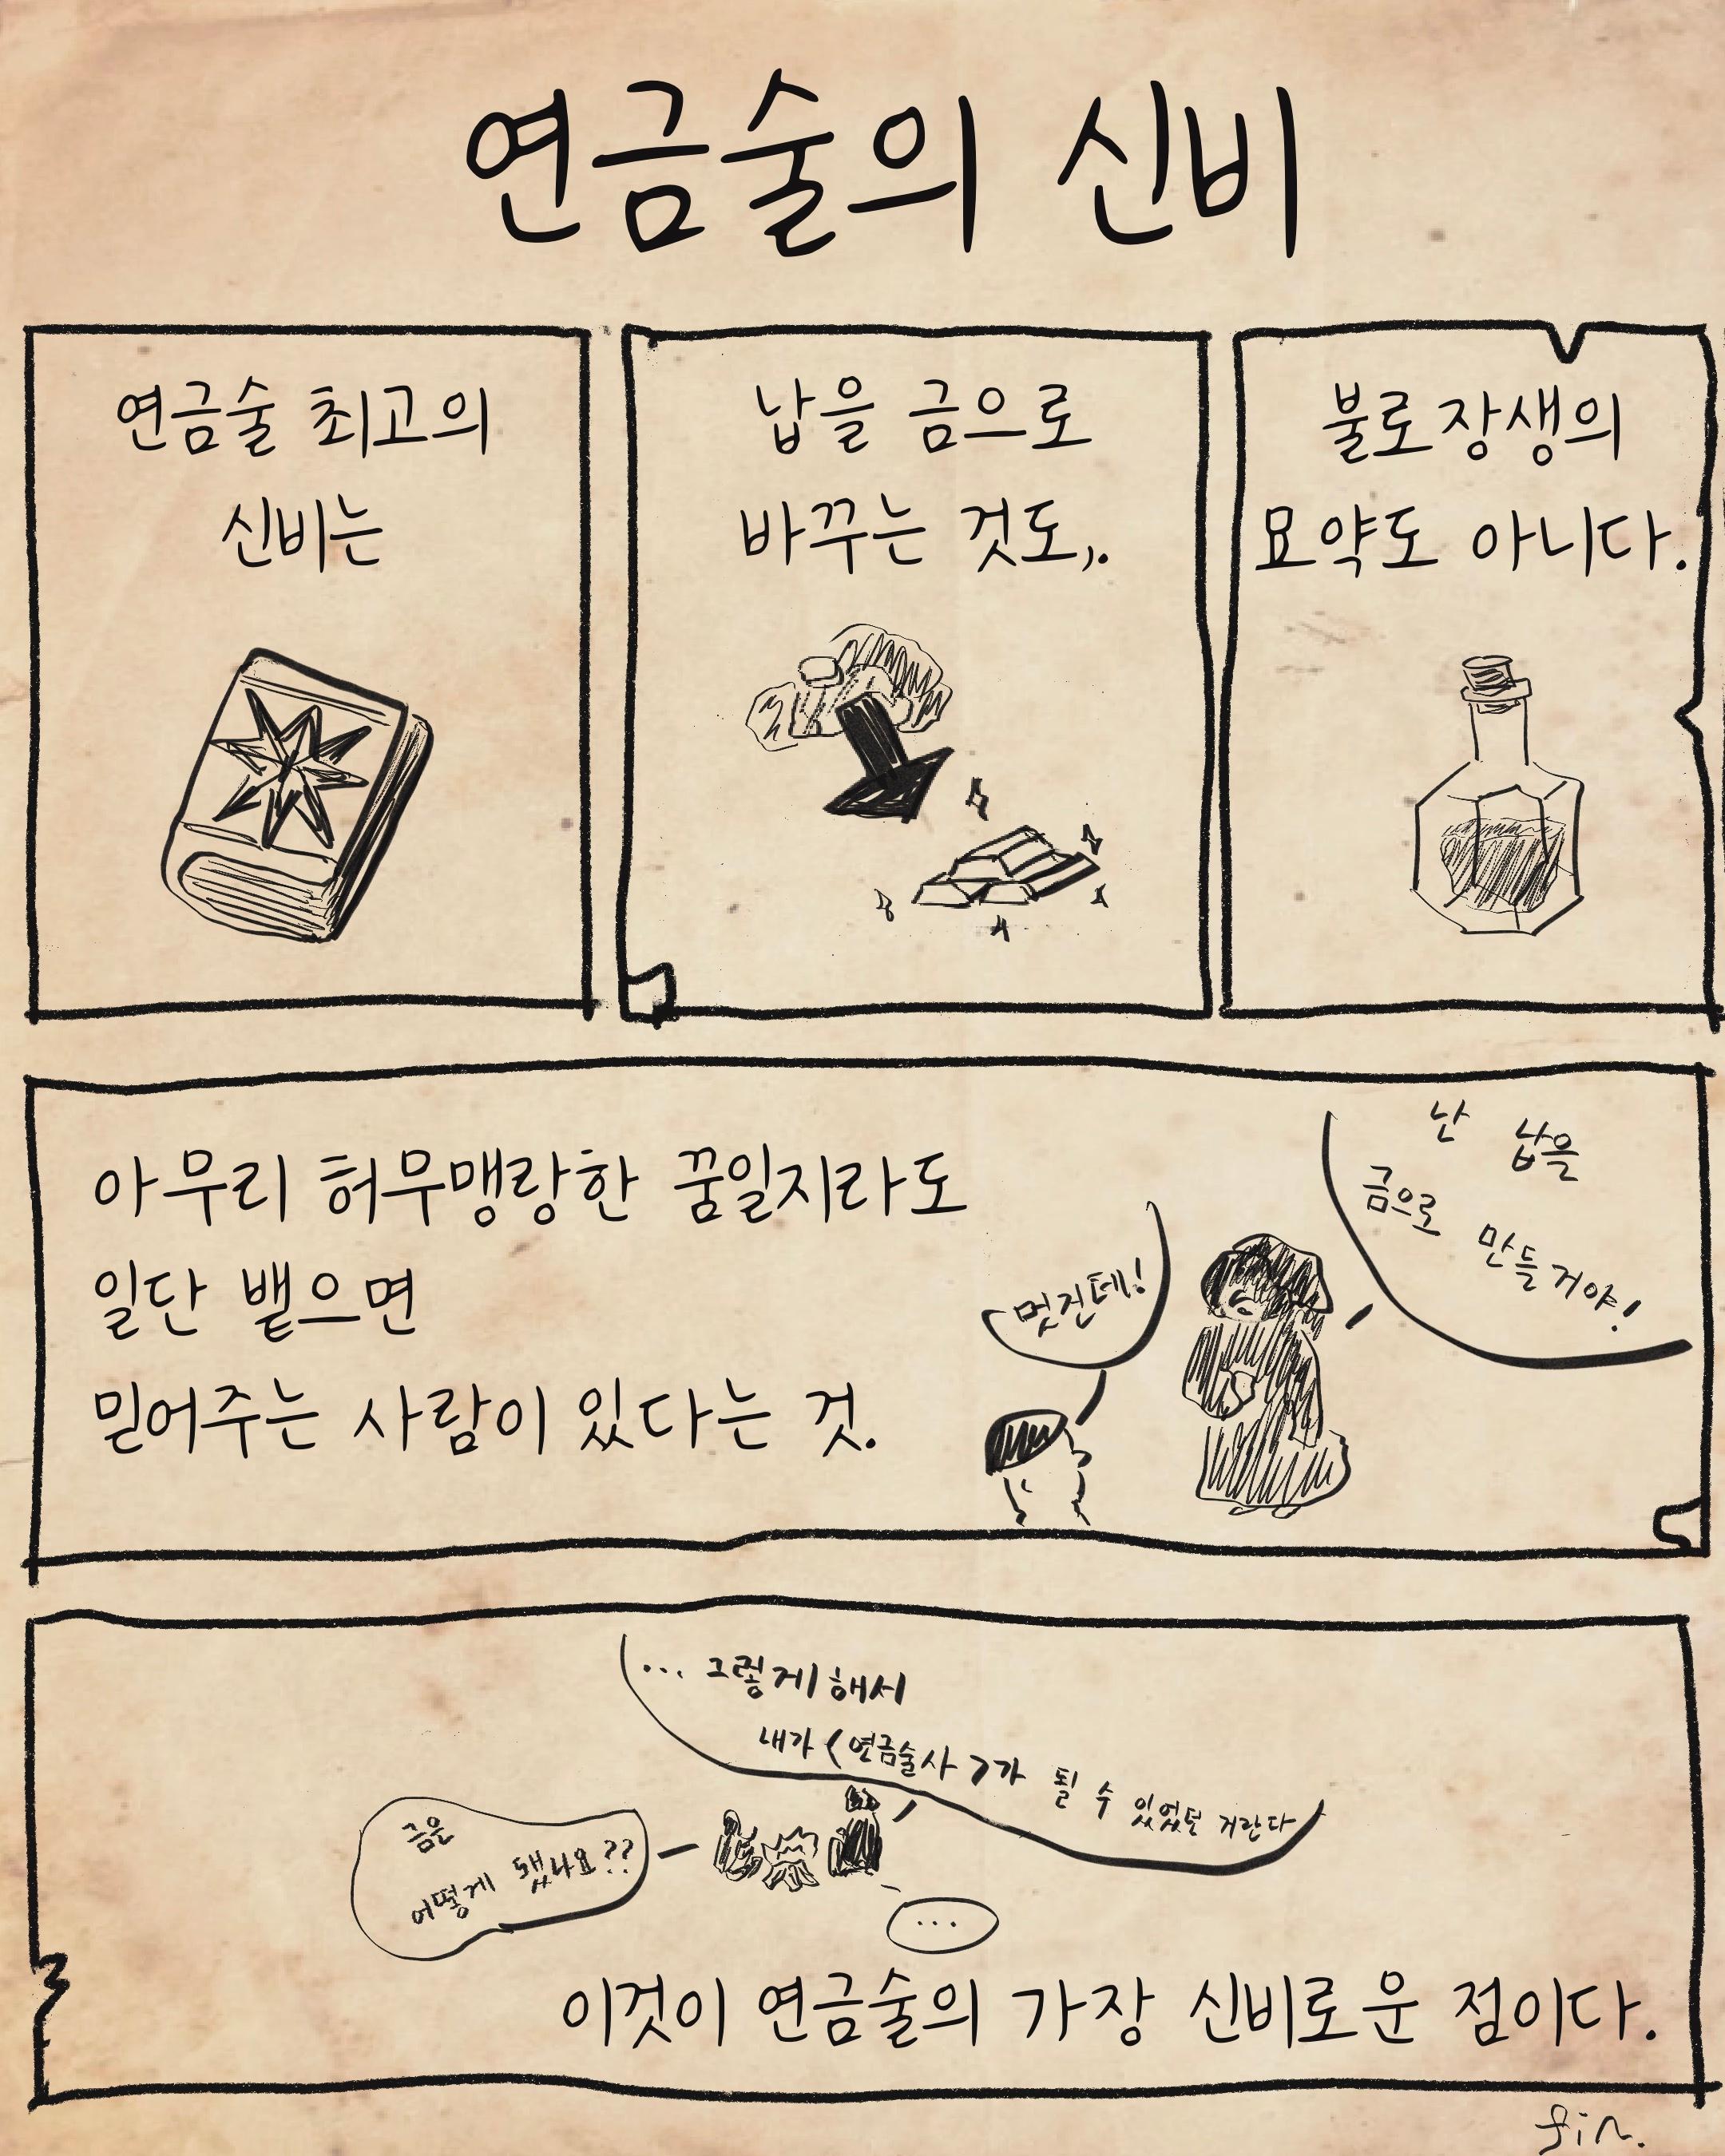 연금술의 신비
연금술 최고의
신비는
납을 금으로
바꾸는 것도,.
불로장생의
묘약도 아니다.
아무리 허무맹랑한 꿈일지라도
일단 뱉으면
믿어주는 사람이 있다는 것.
난 납을
금으로 만들거야!
멋진데!
... 그렇게 해서
내가 <연금술사>가 될 수 있었던 거란다
금은
어떻게 됐나요??
...
이것이 연금술의 가장 신비로운 점이다.
fin.